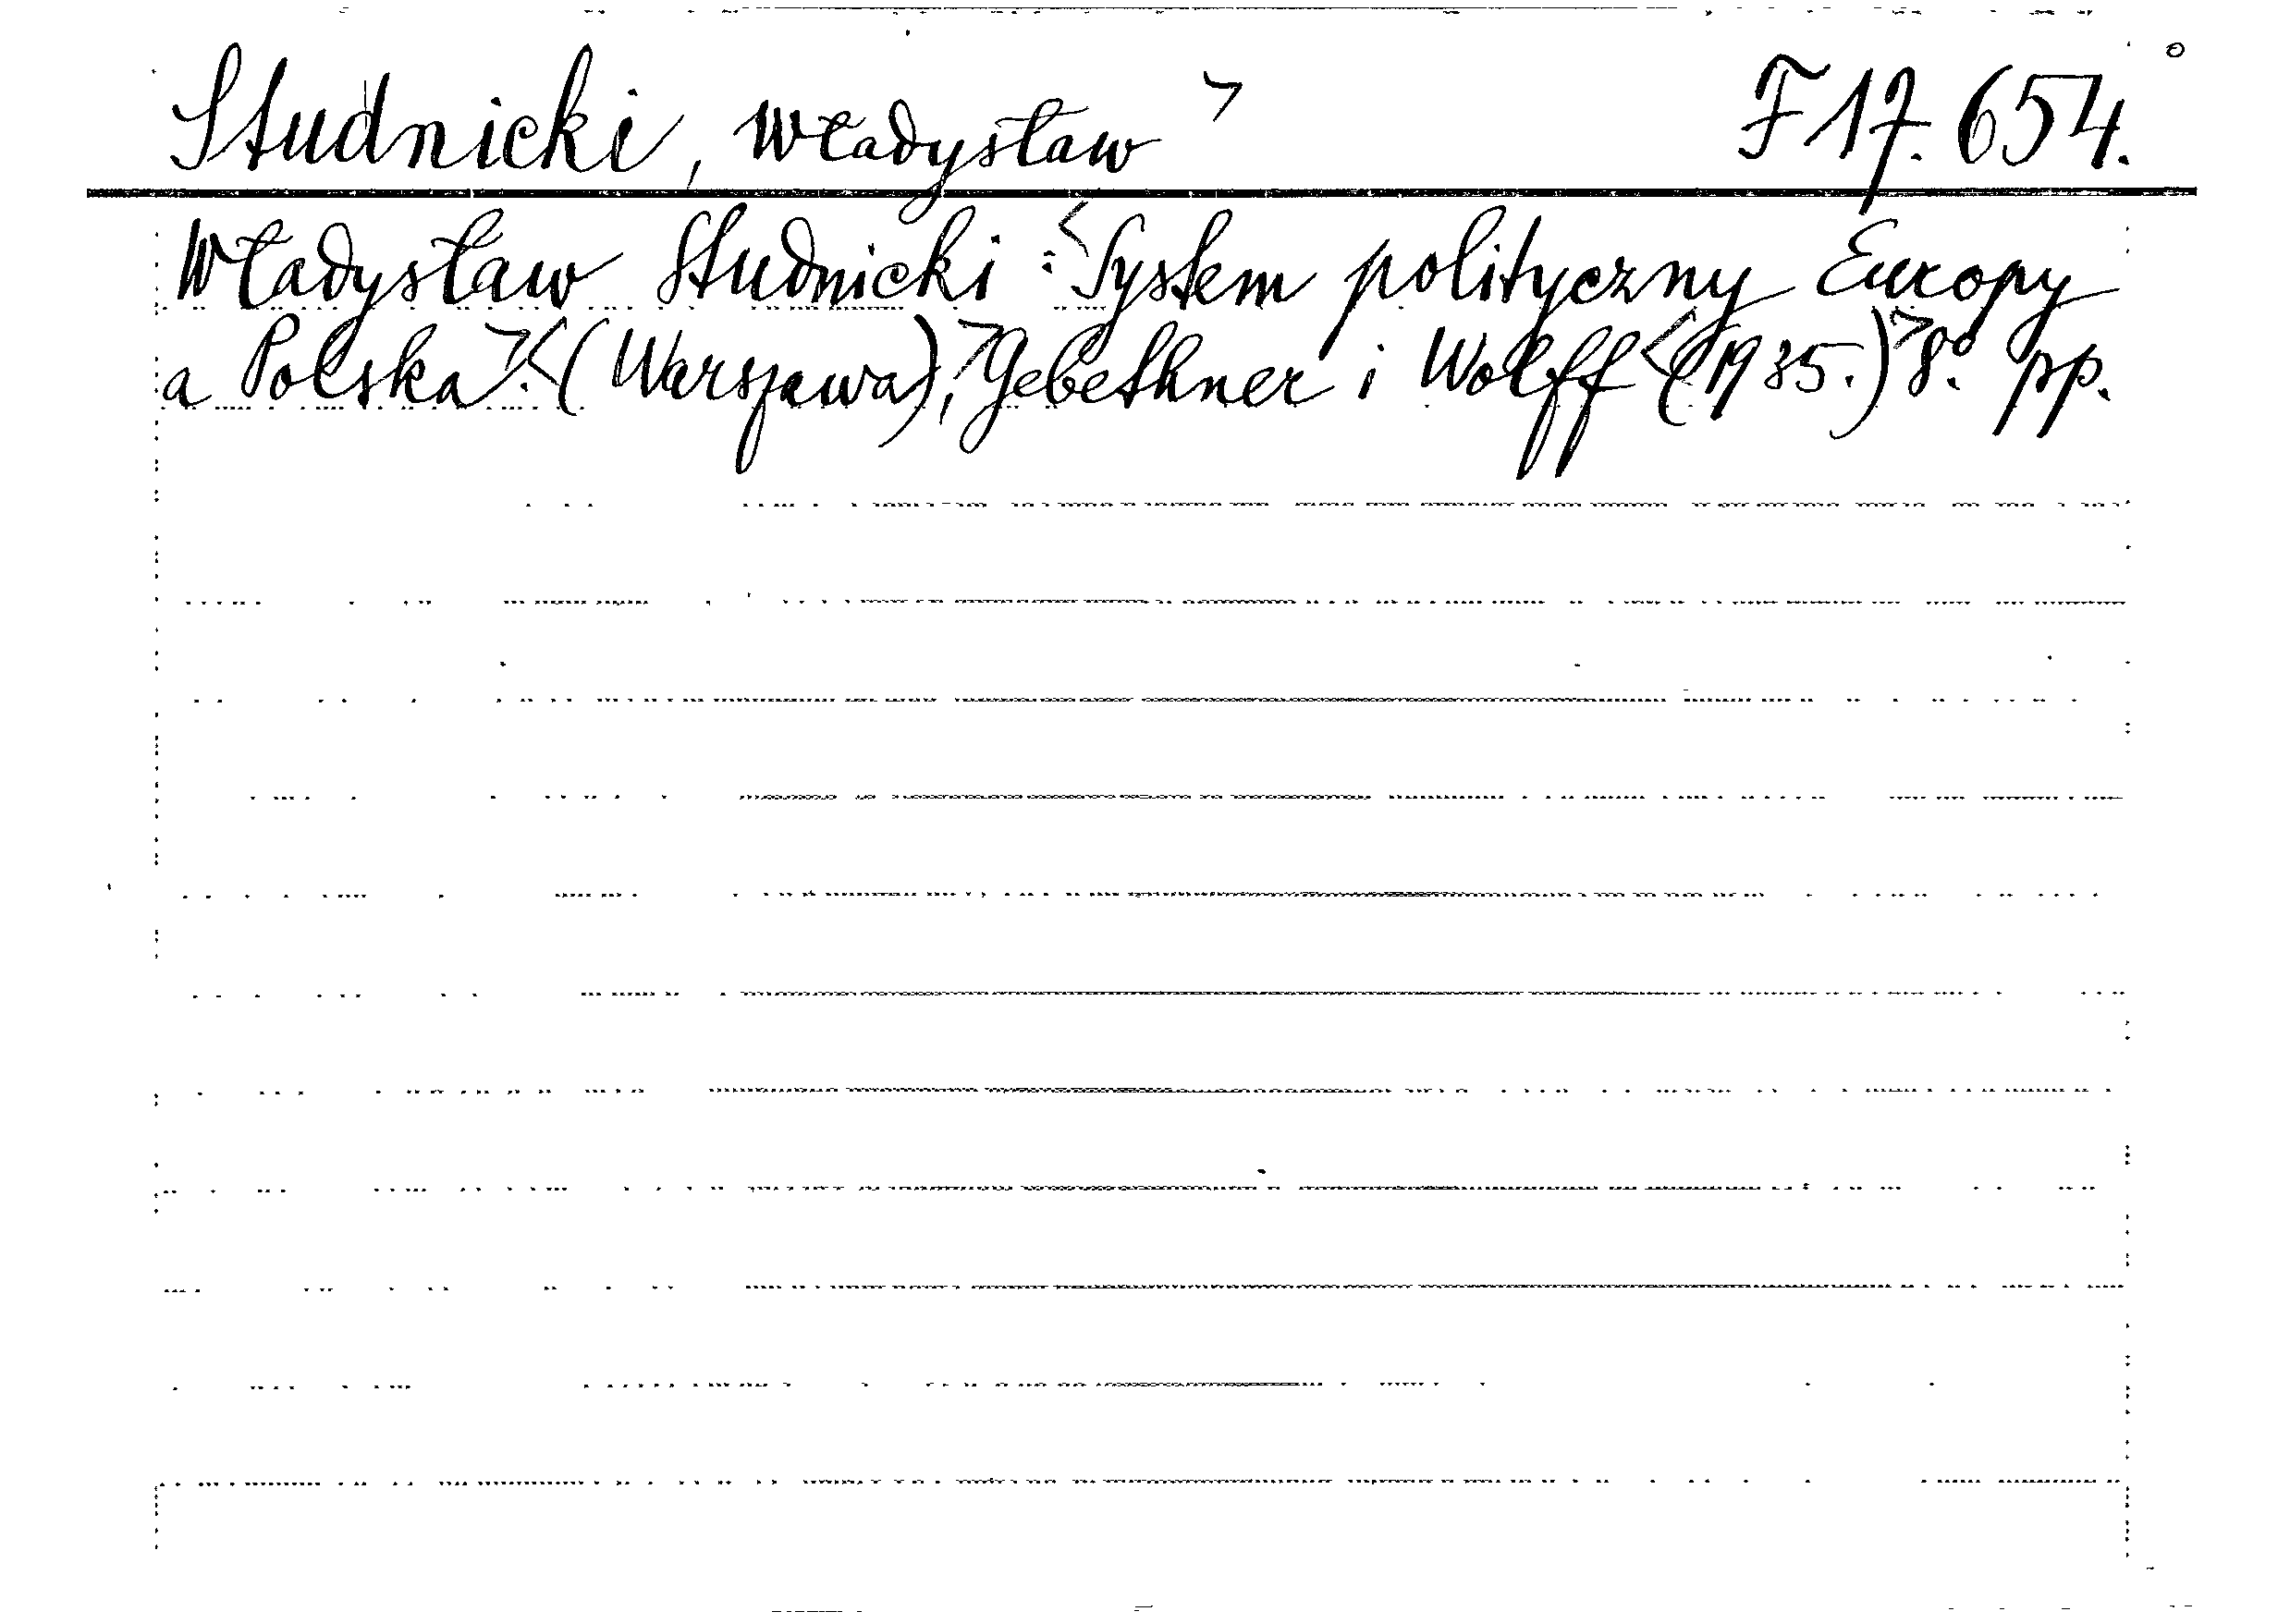 Studnicki, Władysław > F 17.654.
Władysław Studnicki :<System polityczny Europy
a Polska>.<(Warszawa),>Gebethner i Wolff<(1935.)>8° pp.